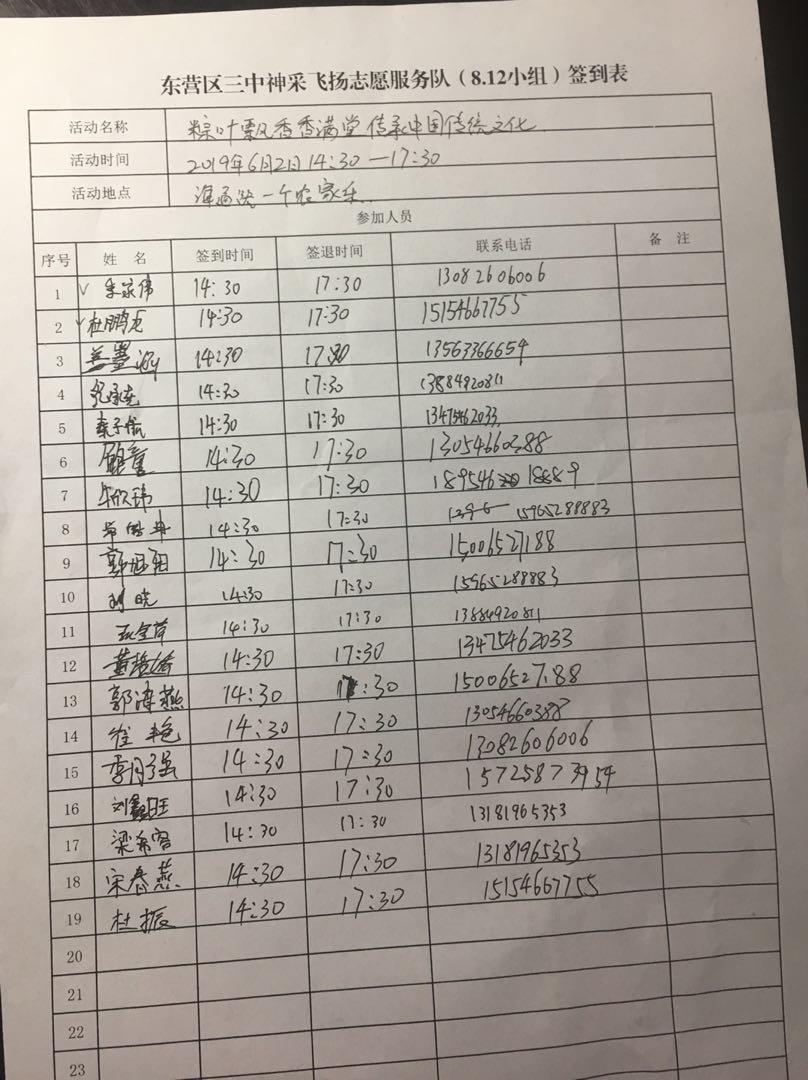 东营区三中神采飞扬志愿服务队（8.12小组）签到表
活动名称 粽叶飘香香满堂 传承中国传统文化
活动时间 2019年6月2日14:30—17:30
活动地点 一个农家乐
参加人员
序号 姓 名 签到时间 签退时间 联系电话 备 注
1 √ 李家伟 14:30 17:30 13082606006
2 √ 杜鹏龙 14:30 17:30 15154667755
3 14:30 17:30 13563366654
4 14:30 17:30 13884920811
5 秦子航 14:30 17:30 13475462033
6 14:30 17:30 13054660388
7 牛欣玮 14:30 17:30 189546 18889
8 14:30 17:30 15965288883
9 郭旭阳 14:30 17:30 15006527188
10 刘晓 14:30 17:30 15965288883
11 14:30 17:30 13884920811
12 14:30 17:30 13475462033
13 郭海燕 14:30 17:30 15006527188
14 崔艳 14:30 17:30 13054660388
15 李月强 14:30 17:30 13082606006
16 刘鑫旺 14:30 17:30 15725873954
17 梁希容 14:30 17:30 13181965353
18 宋春燕 14:30 17:30 13181965353
19 杜振 14:30 17:30 15154667755
20
21
22
23